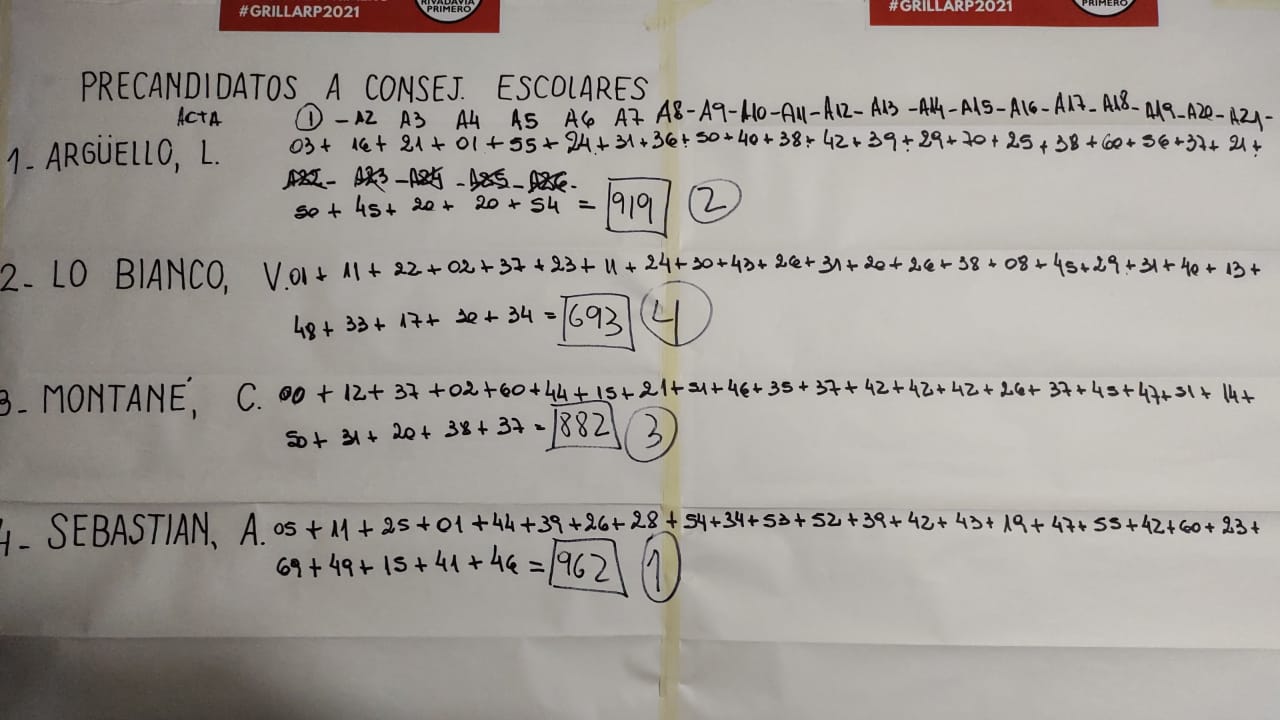 #GRILLARP2021
RIVADAVIA
PRIMERO
#GRILLARP2021
PRIMERO
PRECANDIDATOS A CONSEJ. ESCOLARES
ACTA ① - A2 A3 A4 A5 A6 A7 A8-A9-A10-A11-A12-A13-A14-A15-A16-A17-A18-A19-A20-A21-
1- ARGÜELLO, L. 03+16+21+01+55+24+31+36+50+40+38+42+39+29+70+25+38+60+56+37+21+
A22-A23-A24-A25-A26-
50+45+20+20+54 = 919 ②
2- LO BIANCO, V. 01+11+22+02+37+23+11+24+30+43+26+31+20+26+38+08+45+29+31+40+13+
48+33+17+30+34 = 693 ④
3- MONTANÉ, C. 00+12+37+02+60+44+15+21+51+46+35+37+42+42+42+26+37+45+47+51+14+
50+31+20+38+37 = 882 ③
4- SEBASTIAN, A. 05+11+25+01+44+39+26+28+54+34+53+52+39+42+43+19+47+55+42+60+23+
69+49+15+41+46 = 962 ①